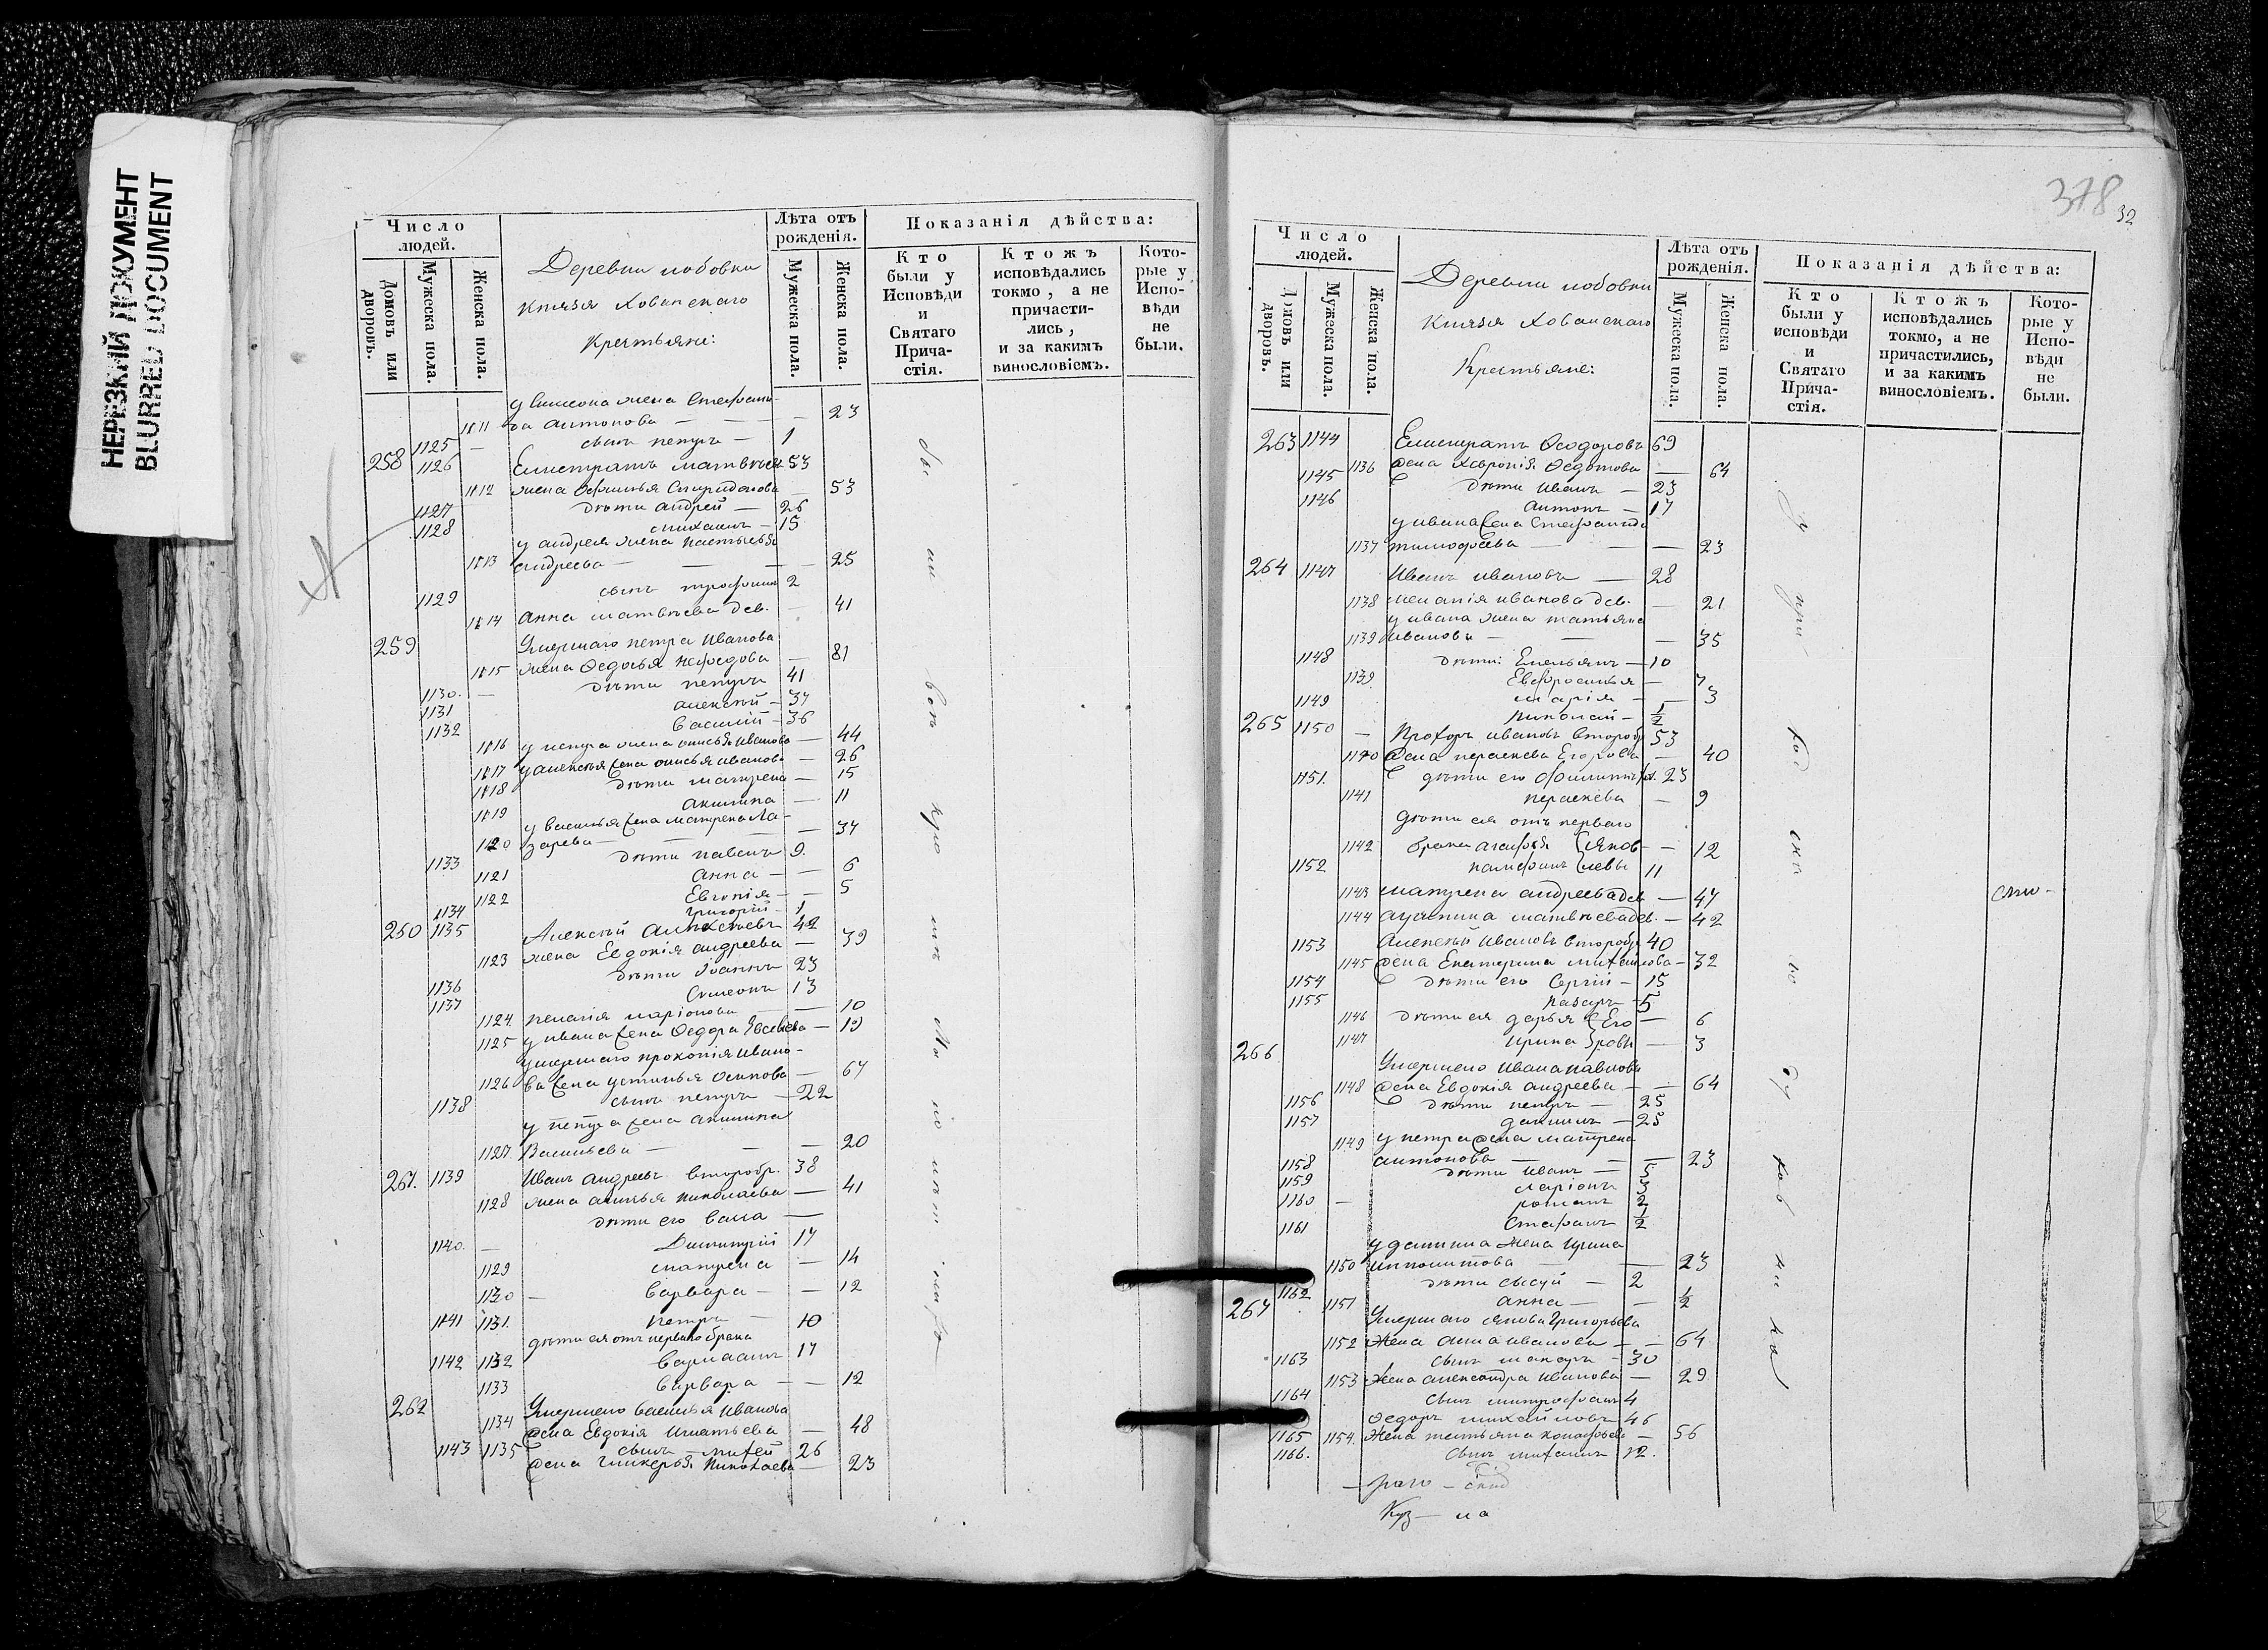 НЕРЕЗКИЙ ДОКУМЕНТ
BLURRED DOCUMENT
Число людей.
Домовъ или дворовъ.
Мужеска пола.
Женска пола.
Деревни
Князя Хованскаго
Крестьяне:
Лѣта отъ рожденія.
Мужеска пола.
Женска пола.
Показанія дѣйства:
Кто были у Исповѣди и Святаго Причастія.
Ктожъ исповѣдались токмо, а не причастились, и за какимъ винословіемъ.
Которые у Исповѣди не были.
1111 ва Антонова — 23
1125 — сынъ Петръ — 1
258 1126 Елистратъ Матвѣевъ 53
1112 жена Спиридонова 53
1127 дѣти Андрей — 26
1128 Михаилъ — 15
у Андрея жена Настасья
1113 Андреева — 25
1129 сынъ Трофимъ 2
1114 Анна Матвѣева дев. — 41
259 Умершаго Петра Иванова
1115 жена Федосья Нефедова — 81
1130. — дѣти Петръ 41
1131 Алексѣй — 37
1132 Василій — 36
1116 у Петра жена Анисья Иванова — 44
1117 у Алексѣя жена Анисья Иванова — 26
1118 дѣти Матрена — 15
1119 Акилина — 11
у Василья жена Матрена Ла-
1120 зарева — 34
1133 дѣти Павелъ 9
1121 Анна — 6
1122 Евгенія — 5
1134 Григорій — 1
260 1135 Алексѣй Алексѣевъ 42
1123 жена Евдокія Андреева — 39
1136 дѣти Іоаннъ 23
1137 Симеонъ 13
1124 Пелагія Ларіонова — 10
1125 у Ивана жена Федора — 19
умершаго Прокопія Ивано-
1126 ва жена Устинья Осипова — 67
1138 сынъ Петръ — 22
у Петра жена Акилина
1127 Васильева — 20
261. 1139 Иванъ Андреевъ второбр. 38
1128 жена Николаева — 41
дѣти его
1140. — Димитрій 17
1129 Матрена — 14
1130 — Варвара — 12
1141 1131. Петръ — 10
дѣти ея отъ перваго брака
1142 1132 Варлаамъ 17
1133 Варвара — 12
262 Умершаго Василья Иванова
1134 жена Евдокія Игнатьева — 48
1143 1135 сынъ Михей 26
жена Гликерья Николаева — 23
378
32
Число людей.
Домовъ или дворовъ.
Мужеска пола.
Женска пола.
Деревни
Князя Хованскаго
Крестьяне:
Лѣта отъ рожденія.
Мужеска пола.
Женска пола.
Показанія дѣйства:
Кто были у исповѣди и Святаго Причастія.
Ктожъ исповѣдались токмо, а не причастились, и за какимъ винословіемъ.
Которые у Исповѣди не были.
263 1144 Елистратъ Ѳеодоровъ 69
1136 жена Хавронія Федотова — 64
1145 дѣти Иванъ — 23
1146 Антонъ — 17
у Ивана жена Стефанида
1137 Тимофеева — 23
264 1147 Иванъ Ивановъ — 28
1138 Меланія Иванова дев. — 21
у Ивана жена Татьяна
1139 Иванова — 35
1148 дѣти: Емельянъ — 10
1139 Евфросинья — 7
Марія — 3
1149 Николай — 1/2
265 1150 — Прохоръ Ивановъ второбр. 53
1140 жена Параскева Егорова — 40
1151. дѣти его 23
1141 Параскева — 9
дѣти ея отъ перваго
1142 брака Агафья Яков- — 12
1152 Памфилъ левы 11
1143 Матрена Андреева дев. — 47
1144 Акулина Матвѣева дев. — 42
1153 Алексѣй Ивановъ второбр. 40
1145 жена Екатерина Михайлова — 32
1154 дѣти его Сергій — 15
1155 Назаръ 5
1146 дѣти ея Дарья Его — 6
1147 Ирина ровы — 3
266 Умершаго Ивана Павлова
1148 жена Евдокія Андреева — 64
1156 дѣти Петръ — 25
1157 Даніилъ — 25
1149 у Петра жена Матрена
Антонова — 23
1158 дѣти Иванъ — 5
1159 Ларіонъ 3
1160 — Романъ 2
1161 Стефанъ 1/2
у Даніила жена Ирина
1150 Ипполитова — 23
1162 дѣти Сысуй — 2
1151 Анна — 1/2
267 Умершаго Якова Григорьева
1152 жена Анна Иванова — 64
1163 сынъ Макаръ — 30
1153 жена Александра Иванова — 29
1164 сынъ Митрофанъ 4
1165 Федоръ Михайловъ 46
1154. жена Татьяна — 56
1166. сынъ Михаилъ 12.